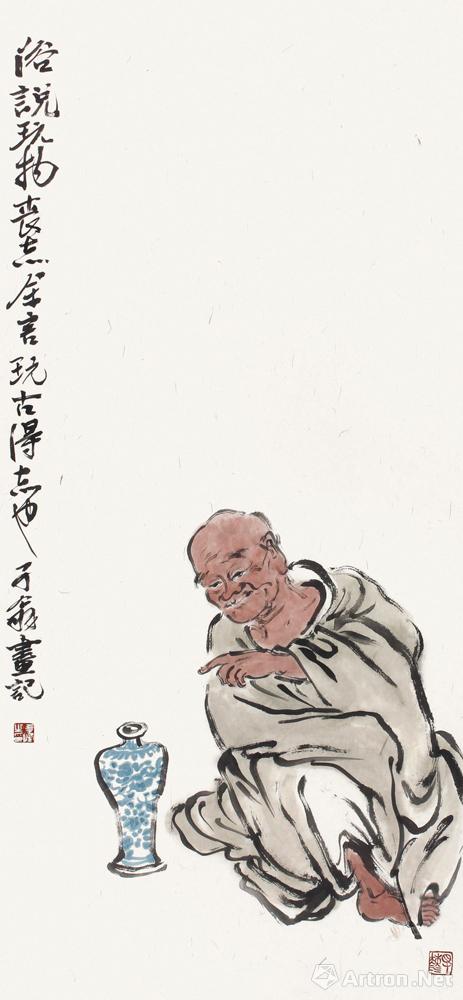 俗說玩物喪志余言玩古得志也子舜畫記
Artron.Net